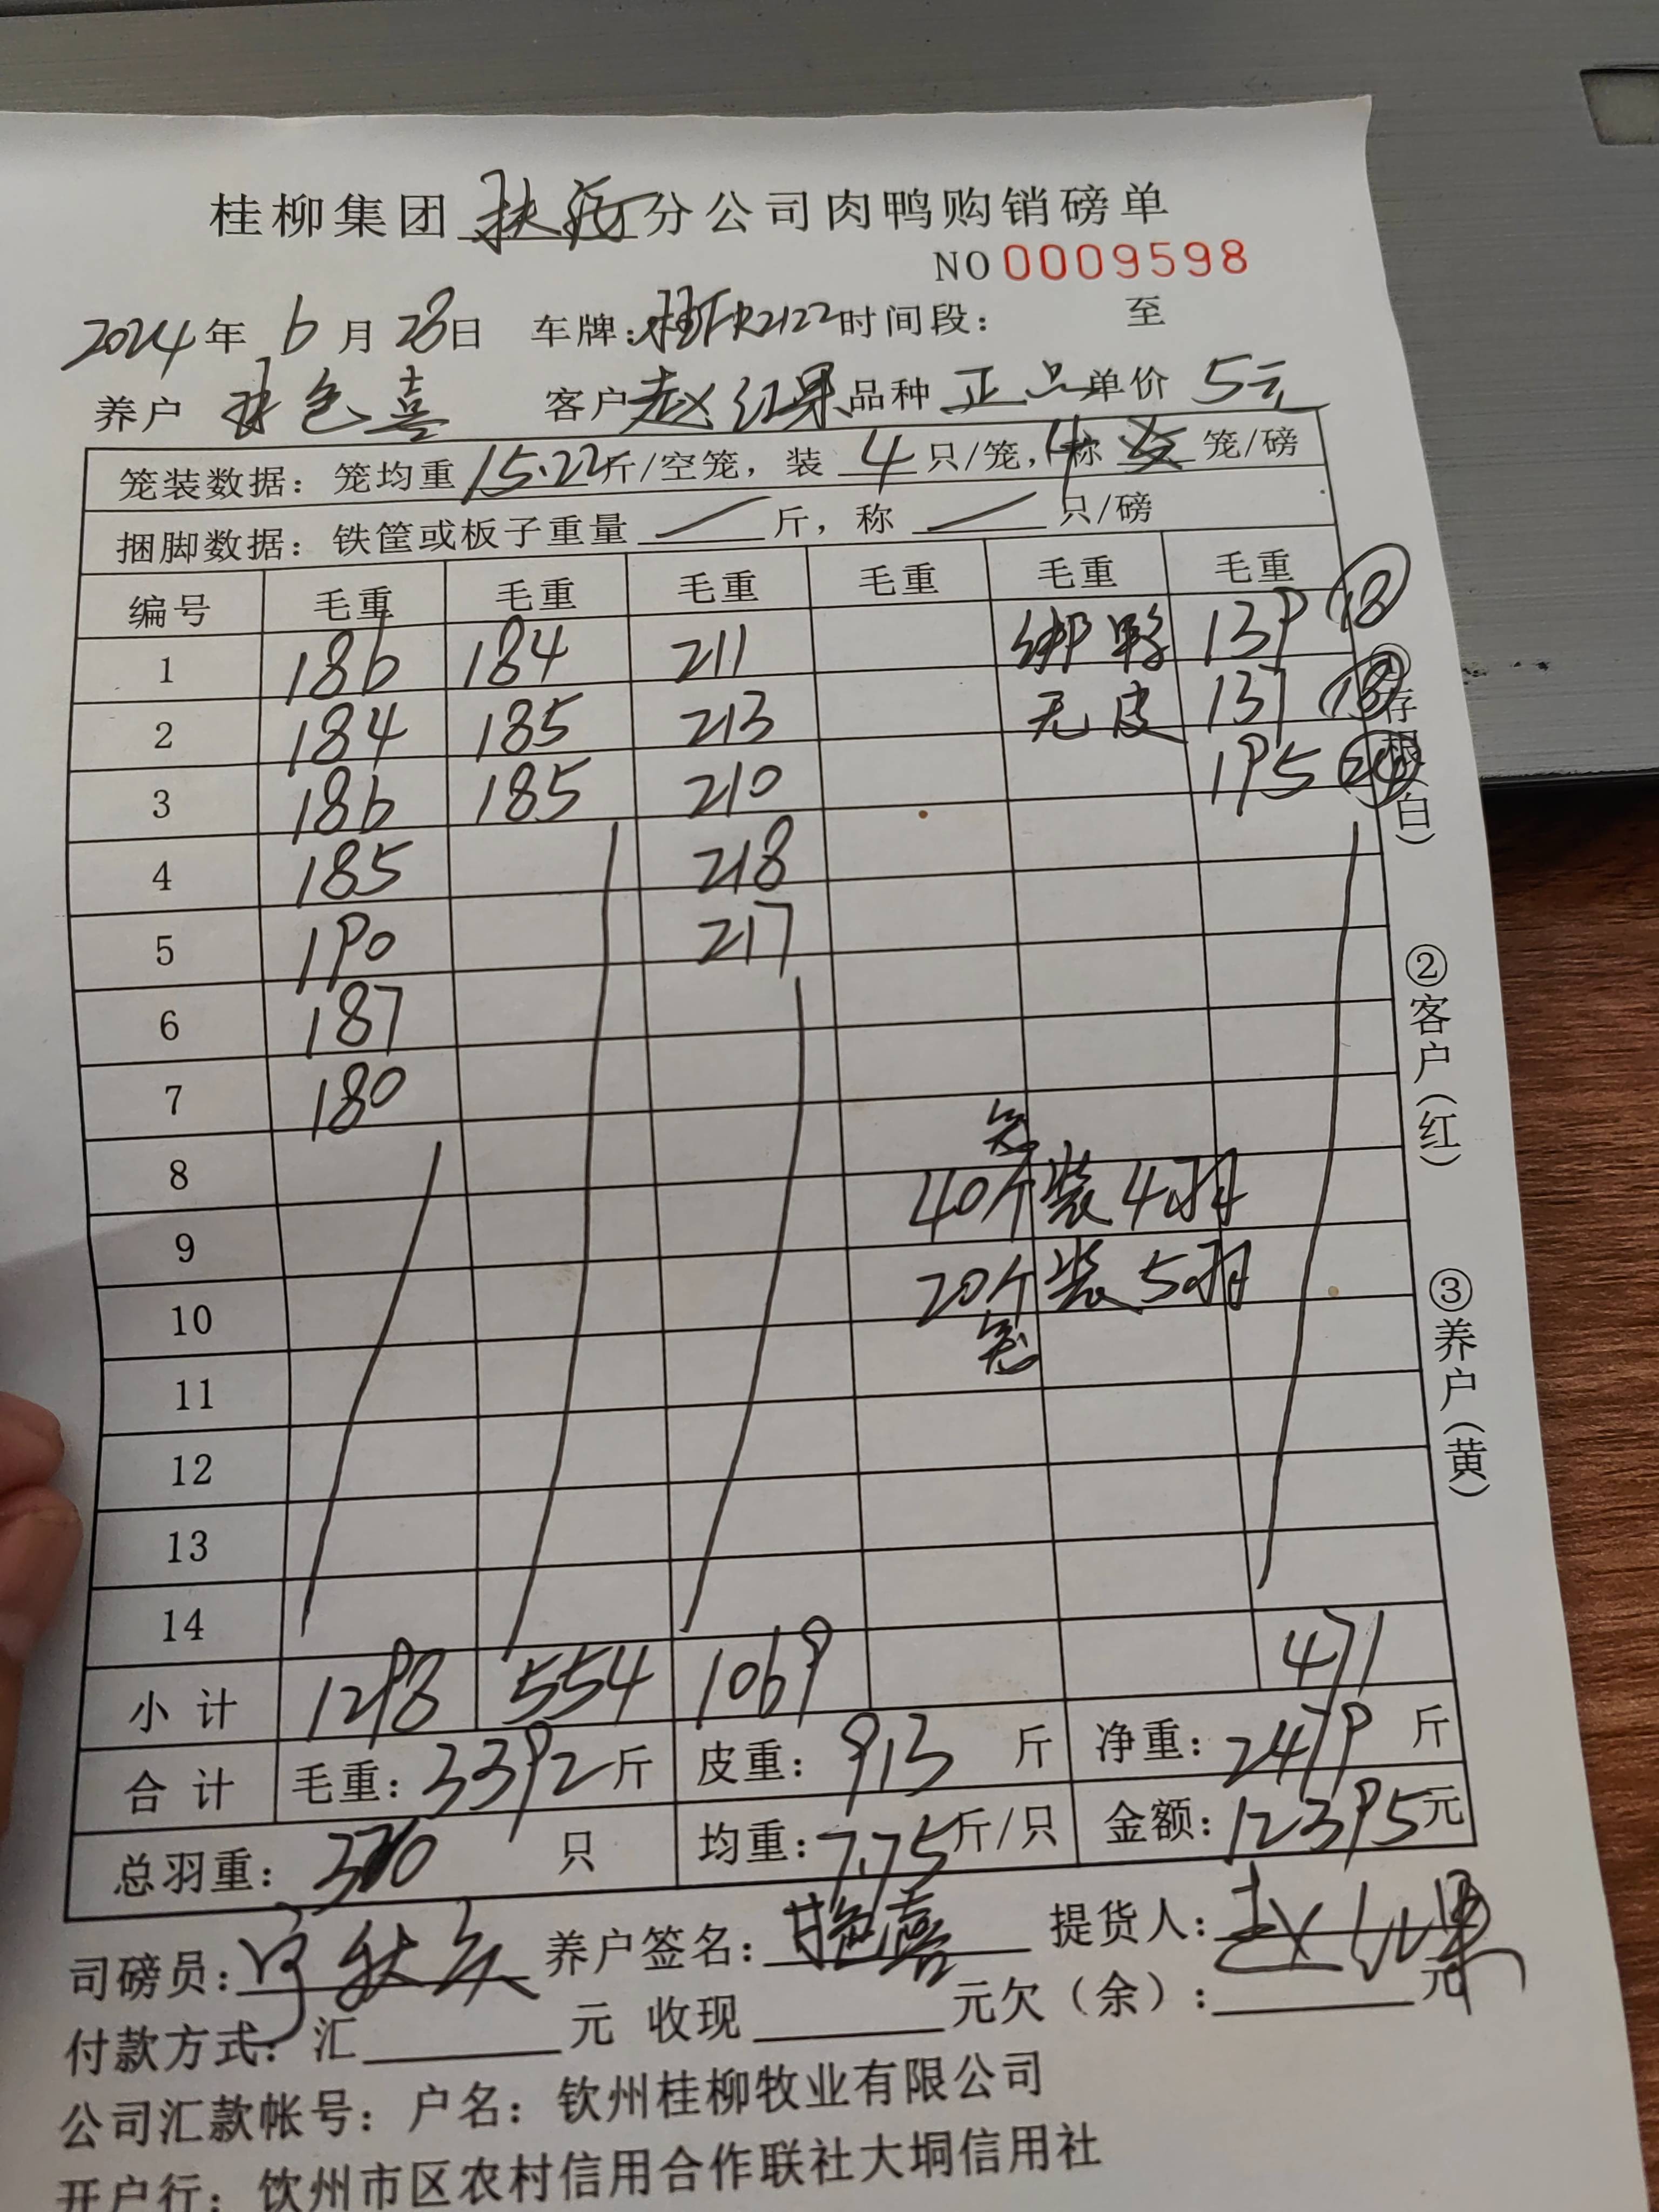 桂柳集团 扶 分公司肉鸭购销磅单
NO 0009598
2024年 6 月 28日 车牌:桂FR2122 时间段: 至
养户 色喜 客户 赵红果 品种 正品 单价 5元
笼装数据: 笼均重 15.22 斤/空笼, 装 4 只/笼, 称 4 笼/磅
捆脚数据: 铁筐或板子重量 / 斤, 称 / 只/磅
编号 毛重 毛重 毛重 毛重 毛重 毛重
1 186 184 211 绑脚 139 18
2 184 185 213 无皮 137 18
3 186 185 210 195
4 185 218
5 190 217
6 187
7 180
8 笼
40个装4羽
9
20个装5羽
10 笼
11
12
13
14
小计 1298 554 1069 471
合计 毛重: 3392 斤 皮重: 913 斤 净重: 2479 斤
总羽重: 只 均重: 7.75 斤/只 金额: 12395 元
司磅员: 养户签名: 艳喜 提货人: 赵红果
付款方式: 汇 元 收现 元欠(余): 元
公司汇款帐号: 户名: 钦州桂柳牧业有限公司
开户行: 钦州市区农村信用合作联社大垌信用社
①存根(白)
②客户(红)
③养户(黄)